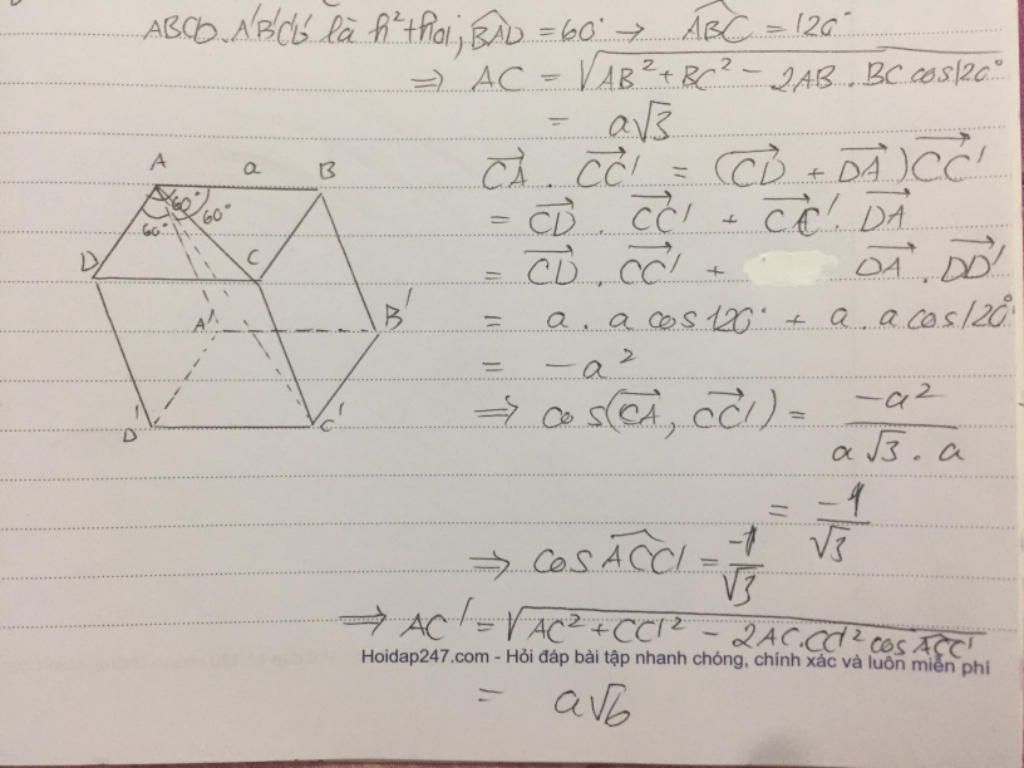 ABCD.A'B'C'D' là h² thoi; BAD = 60° → ABC = 120°
⇒ AC = √AB² + BC² - 2AB.BC cos120°
= a√3
CA . CC' = (CD + DA)CC'
= CD . CC' + CC' . DA
= CD . CC' + DA . DD'
= a . a cos120° + a . a cos120°
= -a²
⇒ cos(CA, CC') = -a² / a√3 . a
= -1 / √3
⇒ cos ACC' = -1 / √3
⇒ AC' = √AC² + CC'² - 2AC.CC'² cos ACC'
Hoidap247.com - Hỏi đáp bài tập nhanh chóng, chính xác và luôn miễn phí
= a√6
A a B
60° 60°
60°
D C
A' B'
D' C'